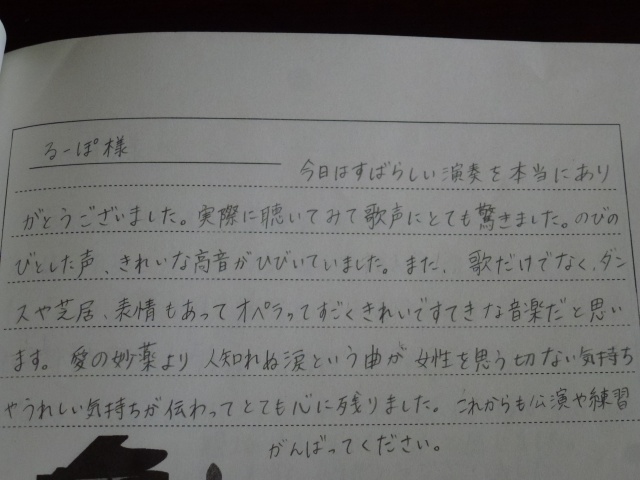 るーぽ様
今日はすばらしい演奏を本当にあり
がとうございました。実際に聴いてみて歌声にとても驚きました。のびの
びとした声、きれいな高音がひびいていました。また、歌だけでなく、ダン
スや芝居、表情もあってオペラってすごくきれいですてきな音楽だと思い
ます。愛の妙薬より人知れぬ涙という曲が女性を思う切ない気持ち
やうれしい気持ちが伝わってとても心に残りました。これからも公演や練習
がんばってください。